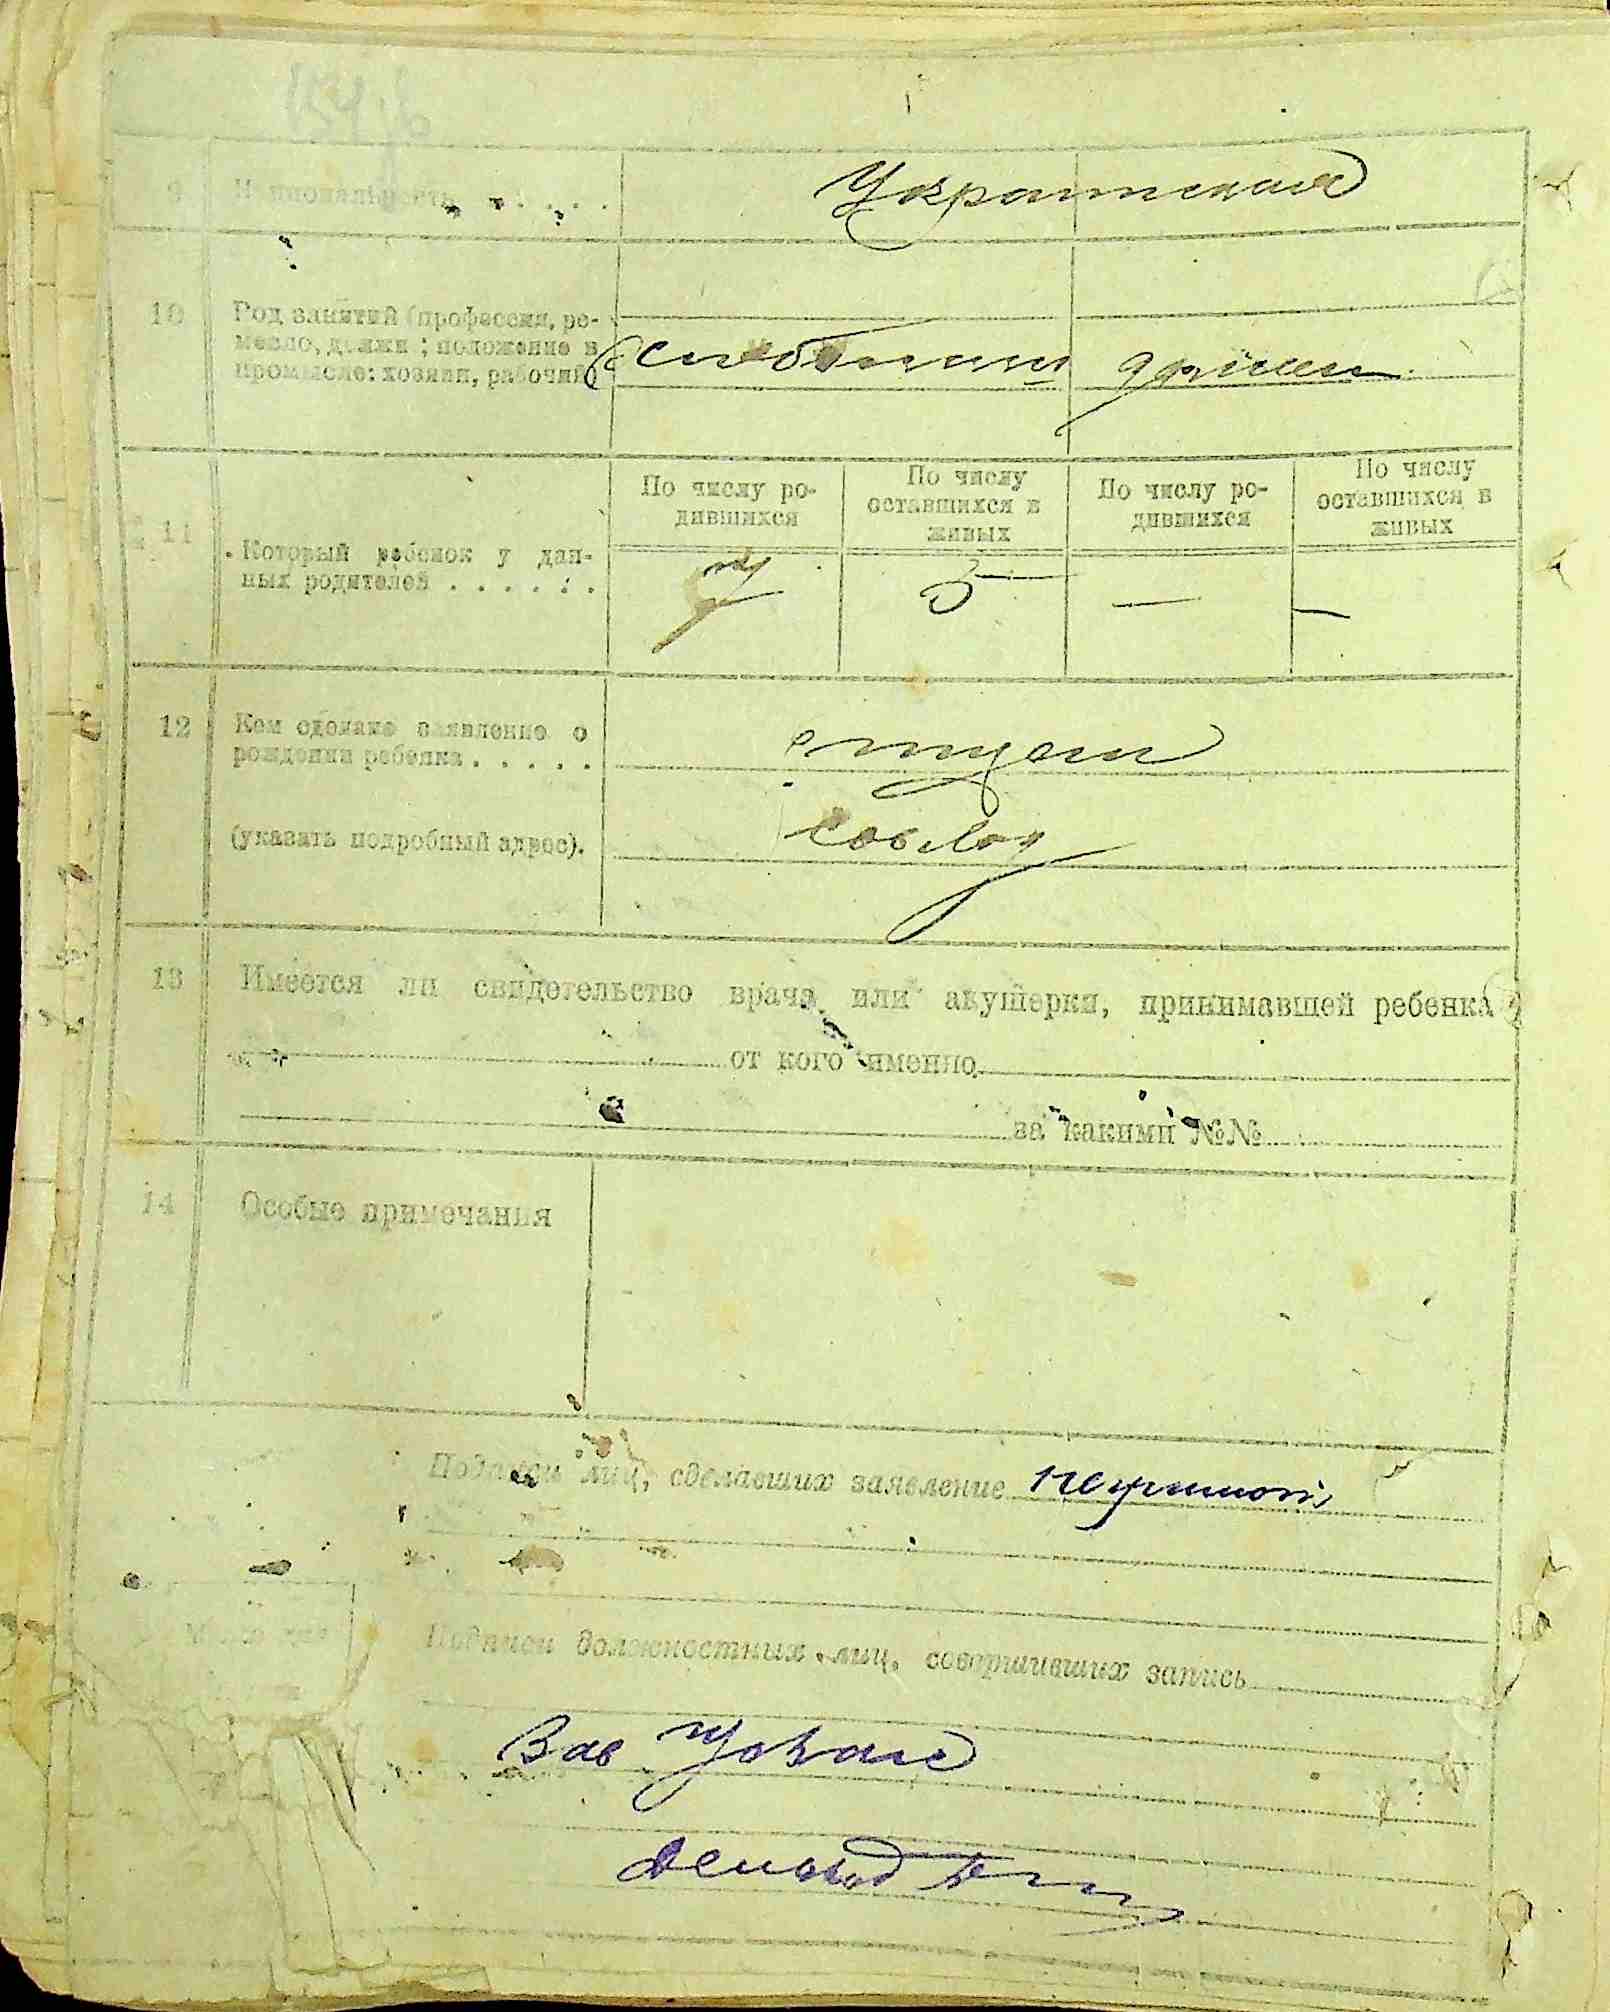 9 Национальность
Украинская
10 Род занятий (профессия, ре-
месло, должн; положение в
промысле: хозяин, рабочий)
11 Который ребенок у дан-
ных родителей
По числу ро-
дившихся
По числу
оставшихся в
живых
По числу ро-
дившихся
По числу
оставшихся в
живых
7 5 — —
12 Кем сделано заявление о
рождении ребенка
отцом
(указать подробный адрес).
13 Имеется ли свидетельство врача или акушерки, принимавшей ребенка
от кого именно
за какими №№
14 Особые примечания
Подписи лиц, сделавших заявление
Подписи должностных лиц, совершивших запись
Зав